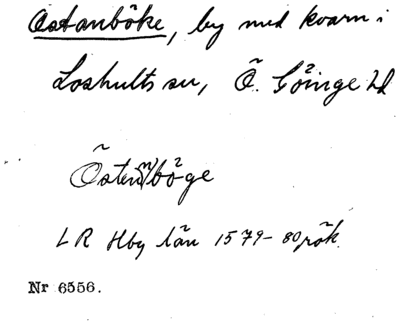 Östanböke, by med kvarn i
Loshults sn, Ö. Göinge hd
Östen böge
LR Hby län 1579-80 rök.
Nr 6556.